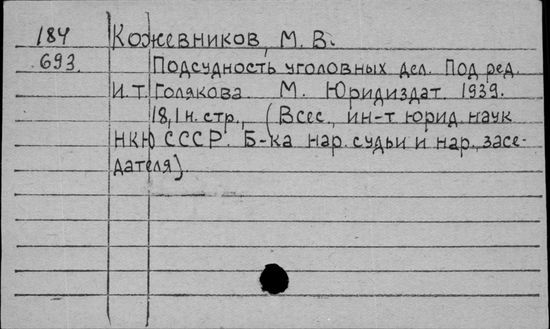 184 Кожевников, М. В.
693. Подсудность уголовных дел. Под ред.
И.Т. Голякова М. Юридиздат. 1939.
18,1 н. стр., (Всес., ин-т юрид. наук
НКЮ СССР. Б-ка нар. судьи и нар., засе-
дателя).